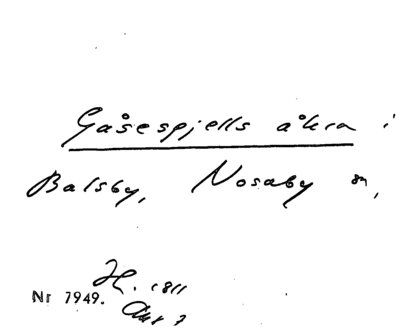 Gåsespjells åkra i
Balsby, Nosaby sn,
H. 1811
Nr 7949.
Akt 7